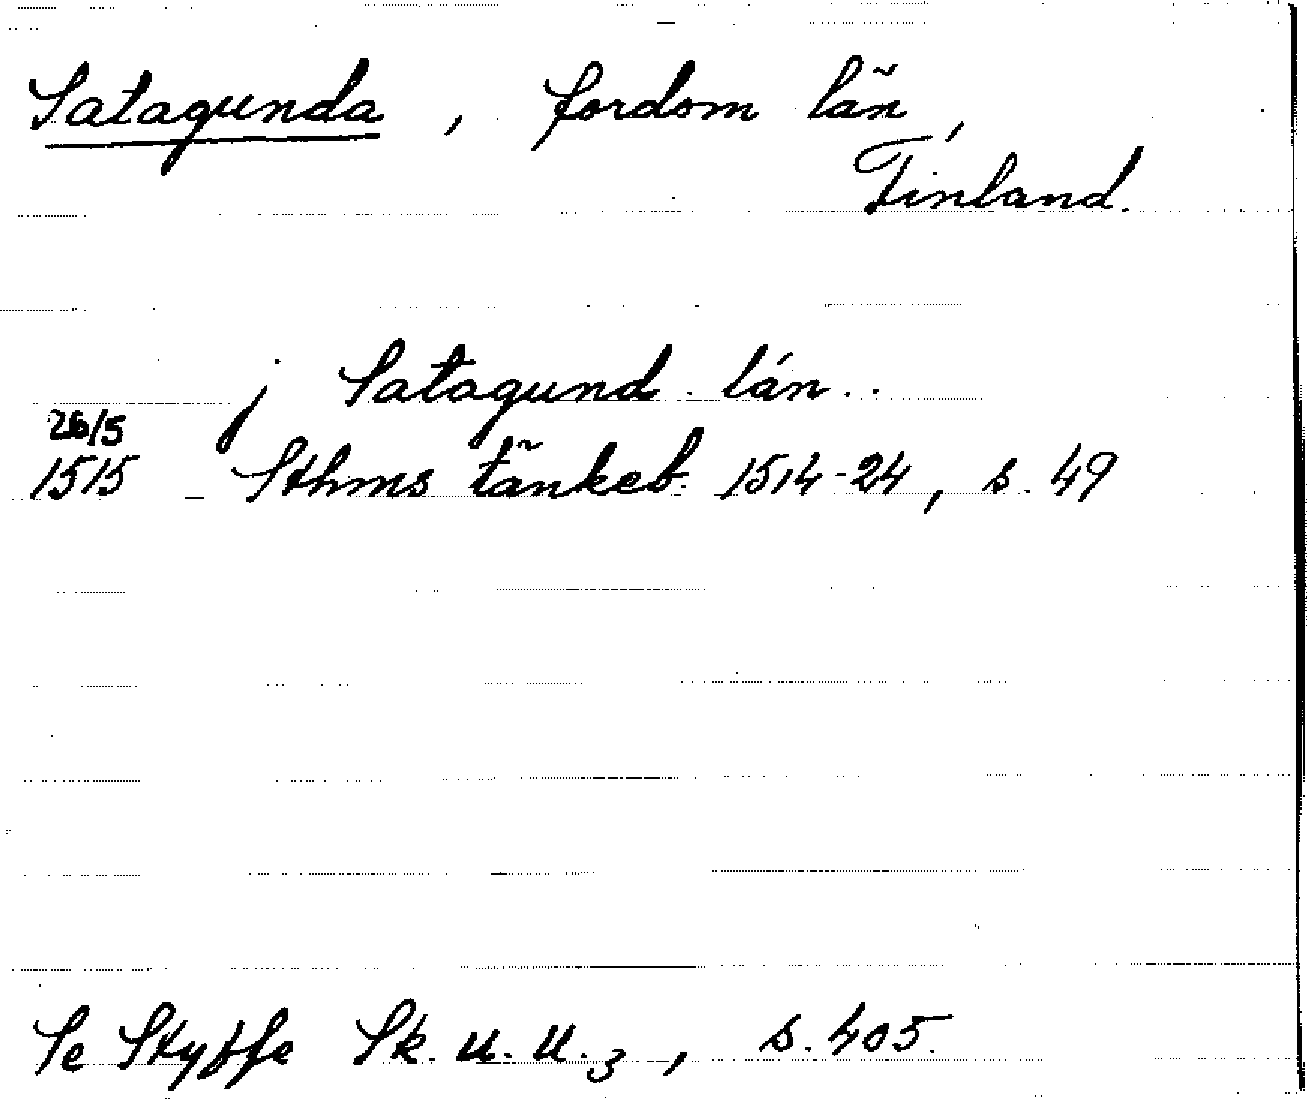 Satagunda, fordom län,
Finland.
j Satagund län..
26/5
1515 - Sthms tänkeb. 1514-24, s. 49
Se Styffe Sk. u. u.3, s. 405.